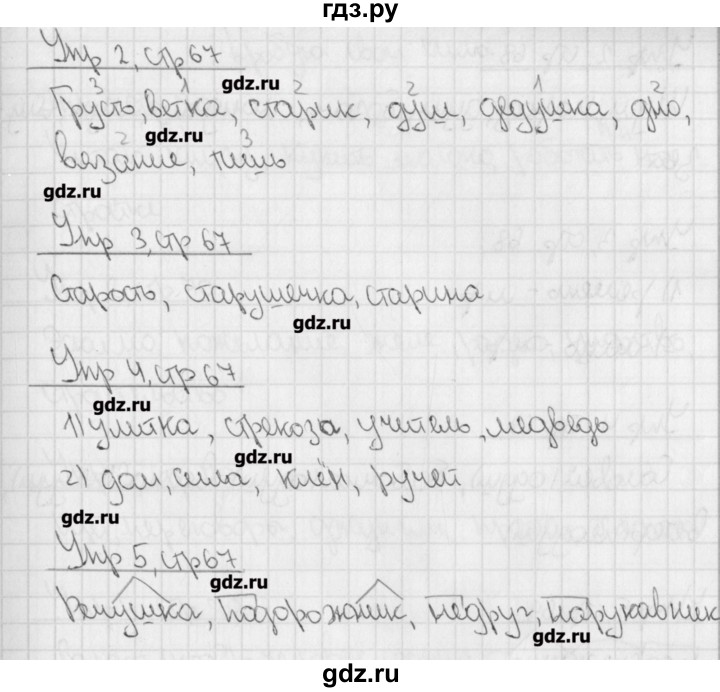 гдз.ру
Упр 2, стр 67
gdz.ru
3 1 2 2 1 2
Грусть, ветка, старик, душ, дедушка, дно,
2 3
вязание, тишь
gdz.ru
Упр 3, стр 67
Старость, старушечка, старина
gdz.ru
Упр 4, стр 67
gdz.ru
1) улитка, стрекоза, учитель, медведь
gdz.ru
2) дом, сила, клён, ручей
gdz.ru
Упр 5, стр 67
gdz.ru
Репушка, подорожник, недруг, нарукавник
gdz.ru
gdz.ru